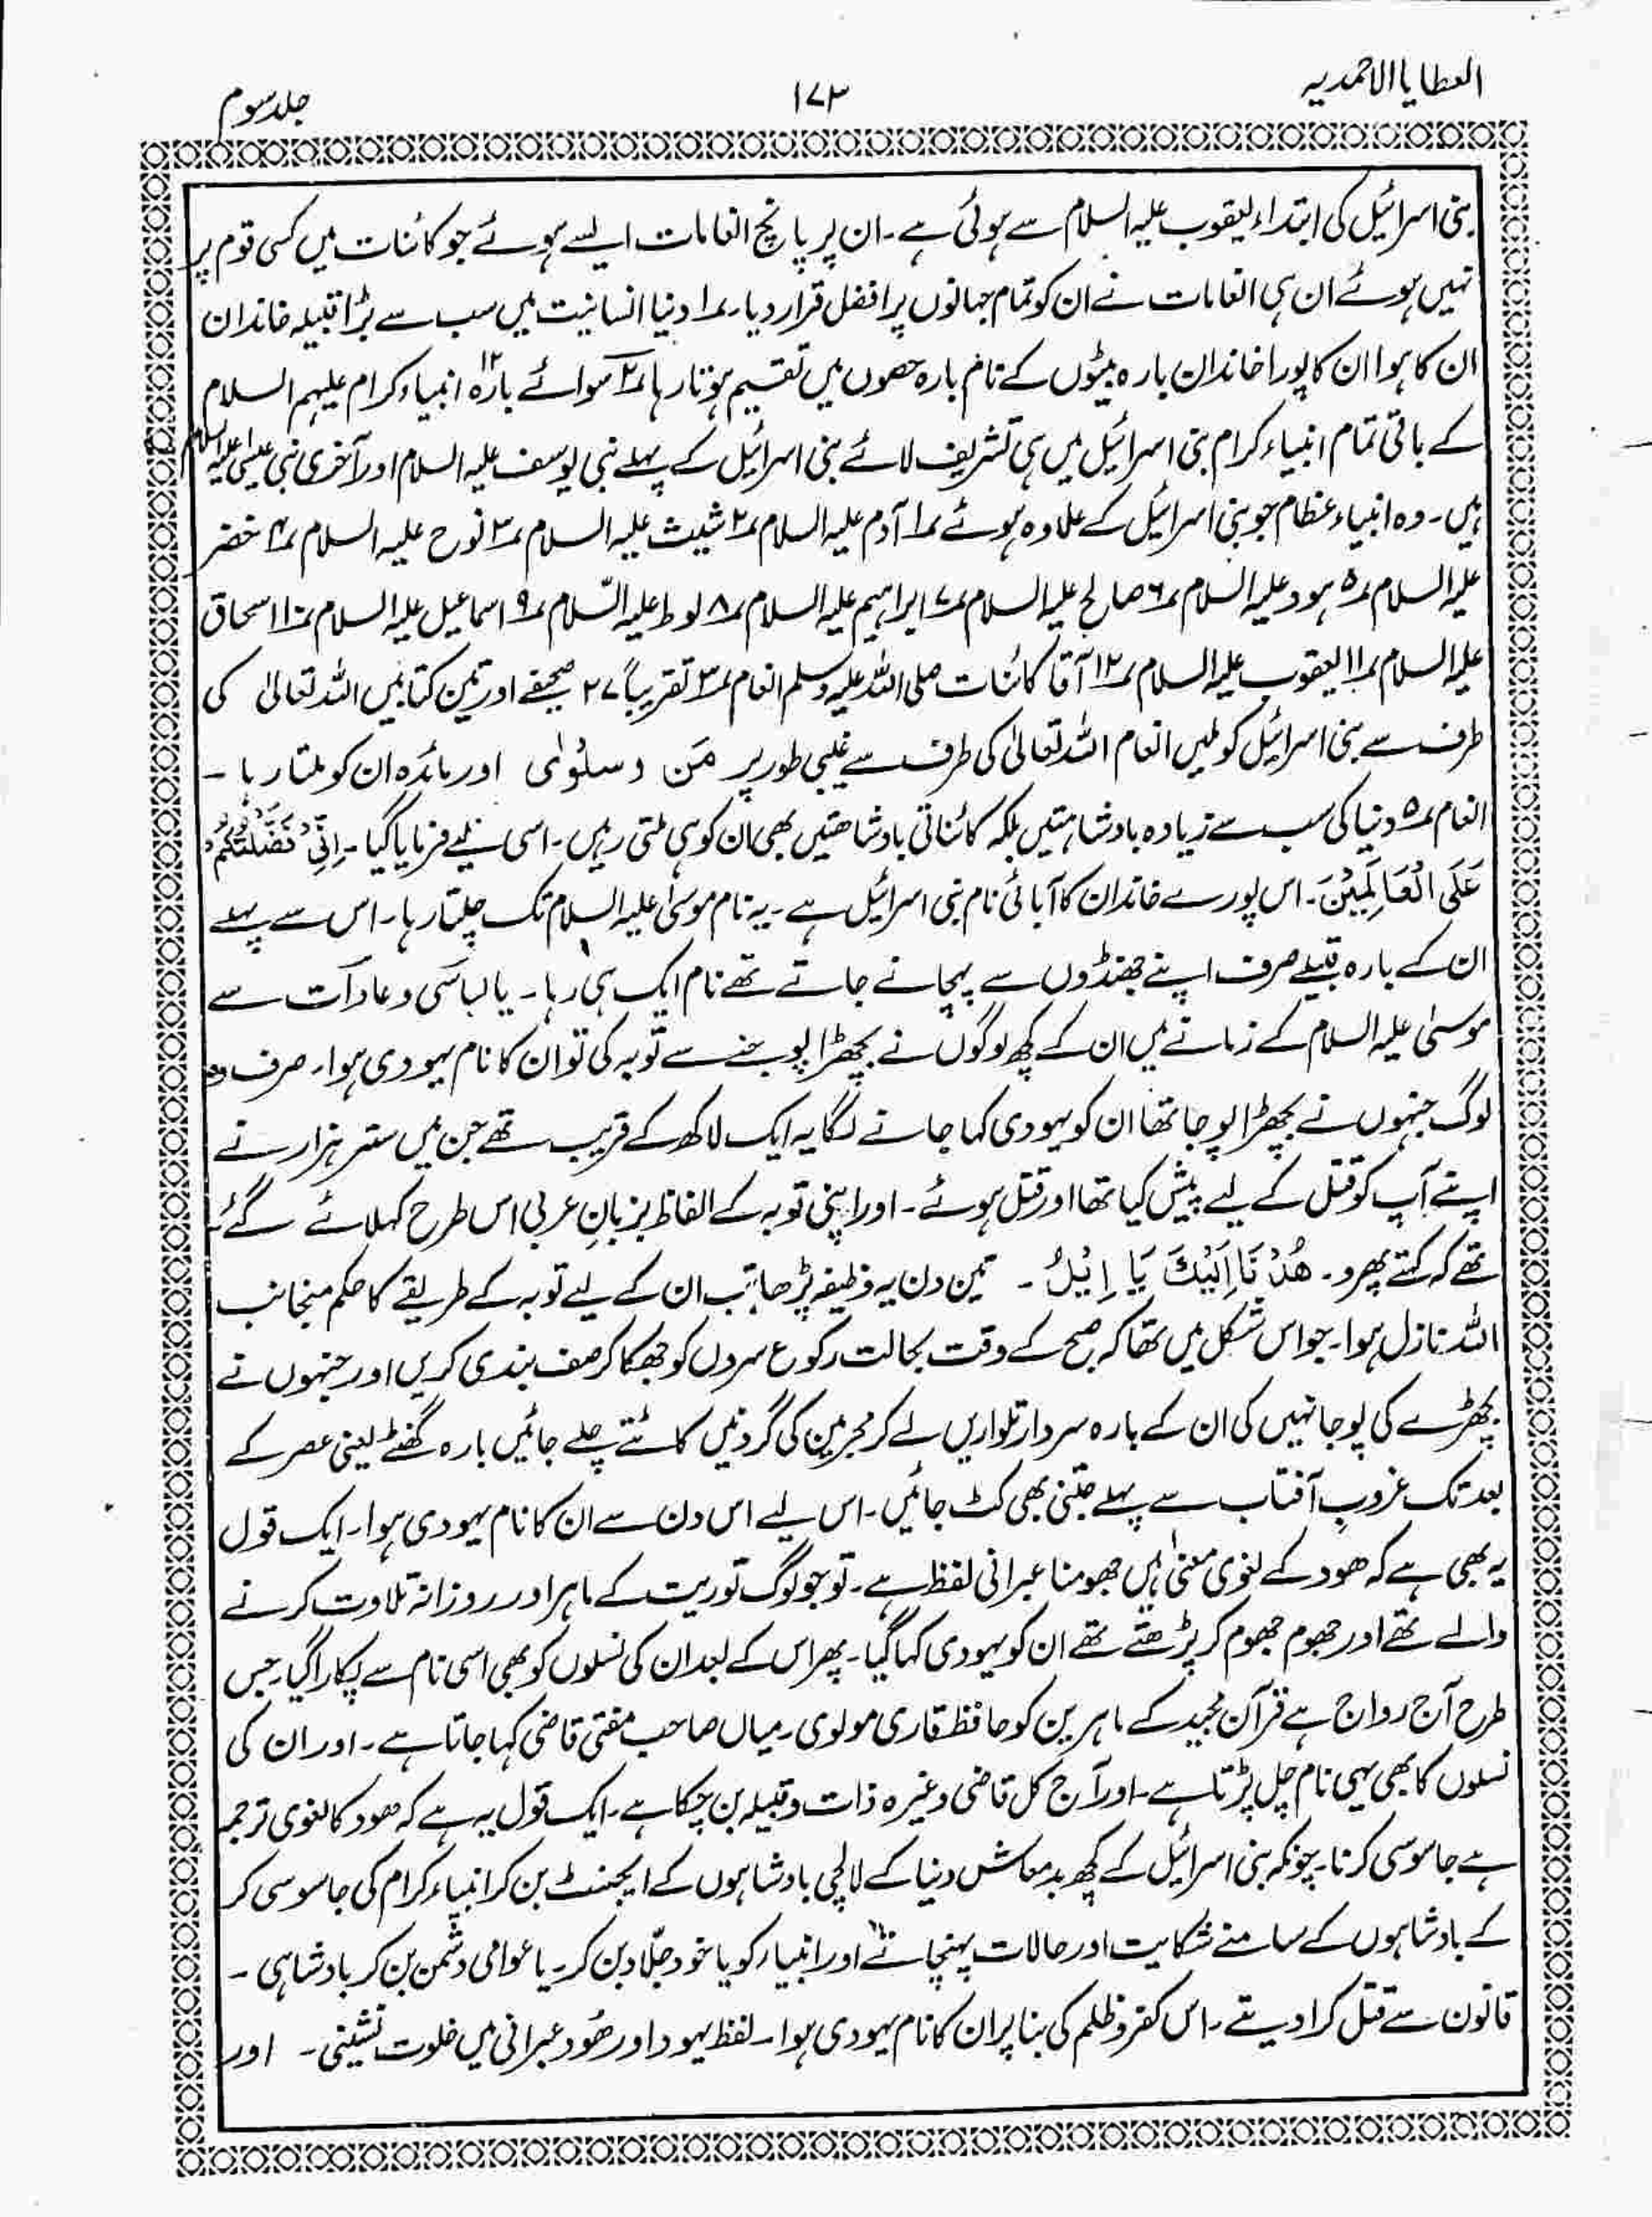 العطایا الاحمدیہ
۱۷۳
جلد سوم
بنی اسرائیل کی ابتداء یعقوب علیہ السلام سے ہوئی ہے۔ ان پر پانچ انعامات ایسے ہوئے جو کائنات میں کسی قوم پر
نہیں ہوئے ان ہی انعامات نے ان کو تمام جہانوں پر افضل قرار دیا۔ ۱؎ دنیا انسانیت میں سب سے بڑا قبیلہ خاندان
ان کا ہوا ان کا پورا خاندان بارہ بیٹوں کے نام بارہ حصوں میں تقسیم ہوتا رہا ۲؎ سوائے بارہ ۱۲ انبیاء کرام علیہم السلام
کے باقی تمام انبیاء کرام بنی اسرائیل میں ہی تشریف لائے بنی اسرائیل کے پہلے نبی یوسف علیہ السلام اور آخری نبی عیسٰی علیہ السلام
ہیں۔ وہ انبیاء عظام جو بنی اسرائیل کے علاوہ ہوئے ۱؎ آدم علیہ السلام ۲؎ شیث علیہ السلام ۳؎ نوح علیہ السلام ۴؎ خضر
علیہ السلام ۵؎ ہود علیہ السلام ۶؎ صالح علیہ السلام ۷؎ ابراہیم علیہ السلام ۸؎ لوط علیہ السّلام ۹؎ اسماعیل علیہ السلام ۱۰؎ اسحاق
علیہ السلام ۱۱؎ یعقوب علیہ السلام ۱۲؎ آقا کائنات صلی اللہ علیہ وسلم انعام ۳؎ تقریباً ۲۷ صحیفے اور تین کتابیں اللہ تعالیٰ کی
طرف سے بنی اسرائیل کو ملیں انعام اللہ تعالیٰ کی طرف سے غیبی طور پر مَن و سلوٰی اور مائدہ ان کو ملتا رہا ۔
انعام ۵؎ دنیا کی سب سے زیادہ بادشاہتیں بلکہ کائناتی بادشاھتیں بھی ان کو ہی ملتی رہیں۔ اسی لیے فرمایا گیا۔ اِنِّیْ فَضَّلْتُکُمْ
عَلَی الْعَالَمِیْنَ۔ اس پورے خاندان کا آبائی نام بنی اسرائیل ہے۔ یہ نام موسٰی علیہ السلام تک چلتا رہا۔ اس سے پہلے
ان کے بارہ قبیلے صرف اپنے جھنڈوں سے پہچانے جاتے تھے نام ایک ہی رہا۔ یا لباسی و عادات سے
موسیٰ علیہ السلام کے زمانے میں ان کے کچھ لوگوں نے بچھڑا پوجنے سے توبہ کی تو ان کا نام یہودی ہوا۔ صرف وہ
لوگ جنہوں نے بچھڑا پوجا تھا ان کو یہودی کہا جانے لگا یہ ایک لاکھ کے قریب تھے جن میں ستر ہزار نے
اپنے آپ کو قتل کے لیے پیش کیا تھا اور قتل ہوئے۔ اور اپنی توبہ کے الفاظ بزبانِ عربی اس طرح کہلائے گئے
تھے کہ کہتے پھرو۔ ھُدْنَا اِلَیْكَ یَا اِیْلُ ۔ تین دن یہ وظیفہ پڑھا تب ان کے لیے توبہ کے طریقے کا حکم منجانب
اللہ نازل ہوا۔ جو اس شکل میں تھا کہ صبح کے وقت بحالت رکوع سروں کو جھکا کر صف بندی کریں اور جنہوں نے
بچھڑے کی پوجا نہیں کی ان کے بارہ سردار تلواریں لے کر مجرمین کی گردنیں کاٹتے چلے جائیں بارہ گھنٹے یعنی عصر کے
بعد تک غروبِ آفتاب سے پہلے جتنی بھی کٹ جائیں۔ اس لیے اس دن سے ان کا نام یہودی ہوا۔ ایک قول
یہ بھی ہے کہ ھود کے لغوی معنیٰ ہیں جھومنا عبرانی لفظ ہے۔ تو جو لوگ توریت کے ماہر اور روزانہ تلاوت کرنے
والے تھے اور جھوم جھوم کر پڑھتے تھے ان کو یہودی کہا گیا۔ پھر اس کے بعد ان کی نسلوں کو بھی اسی نام سے پکارا گیا۔ جس
طرح آج رواج ہے قرآن مجید کے ماہرین کو حافظ قاری مولوی۔ میاں صاحب مفتی قاضی کہا جاتا ہے۔ اور ان کی
نسلوں کا بھی یہی نام چل پڑتا ہے۔ اور آج کل قاضی وغیرہ ذات و قبیلہ بن چکا ہے۔ ایک قول یہ ہے کہ ھود کا لغوی ترجمہ
ہے جاسوسی کرنا۔ چونکہ بنی اسرائیل کے کچھ بدمعاش دنیا کے لالچی بادشاہوں کے ایجنٹ بن کر انبیاء کرام کی جاسوسی کر
کے بادشاہوں کے سامنے شکایت اور حالات پہنچاتے اور انبیاء کو یا خود جلّاد بن کر۔ یا عوامی دشمن بن کر بادشاہی ۔
قانون سے قتل کرا دیتے۔ اس کفر و ظلم کی بنا پر ان کا نام یہودی ہوا۔ لفظ یہود اور ھُود عبرانی میں خلوت نشینی۔ اور